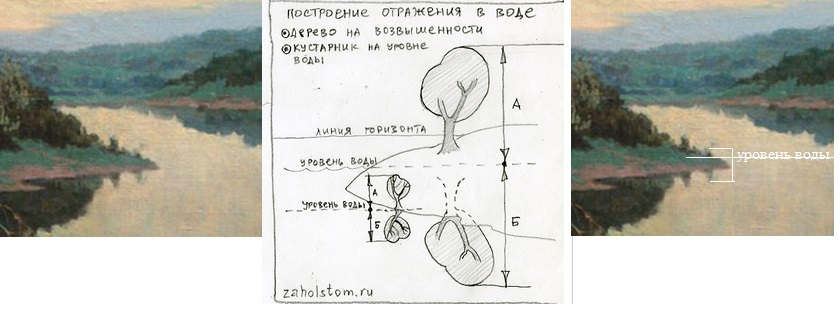 ПОСТРОЕНИЕ ОТРАЖЕНИЯ В ВОДЕ
ДЕРЕВО НА ВОЗВЫШЕННОСТИ
КУСТАРНИК НА УРОВНЕ
ВОДЫ
А
ЛИНИЯ ГОРИЗОНТА
УРОВЕНЬ ВОДЫ
уровень воды
А
УРОВЕНЬ ВОДЫ
Б
Б
zaholstom.ru